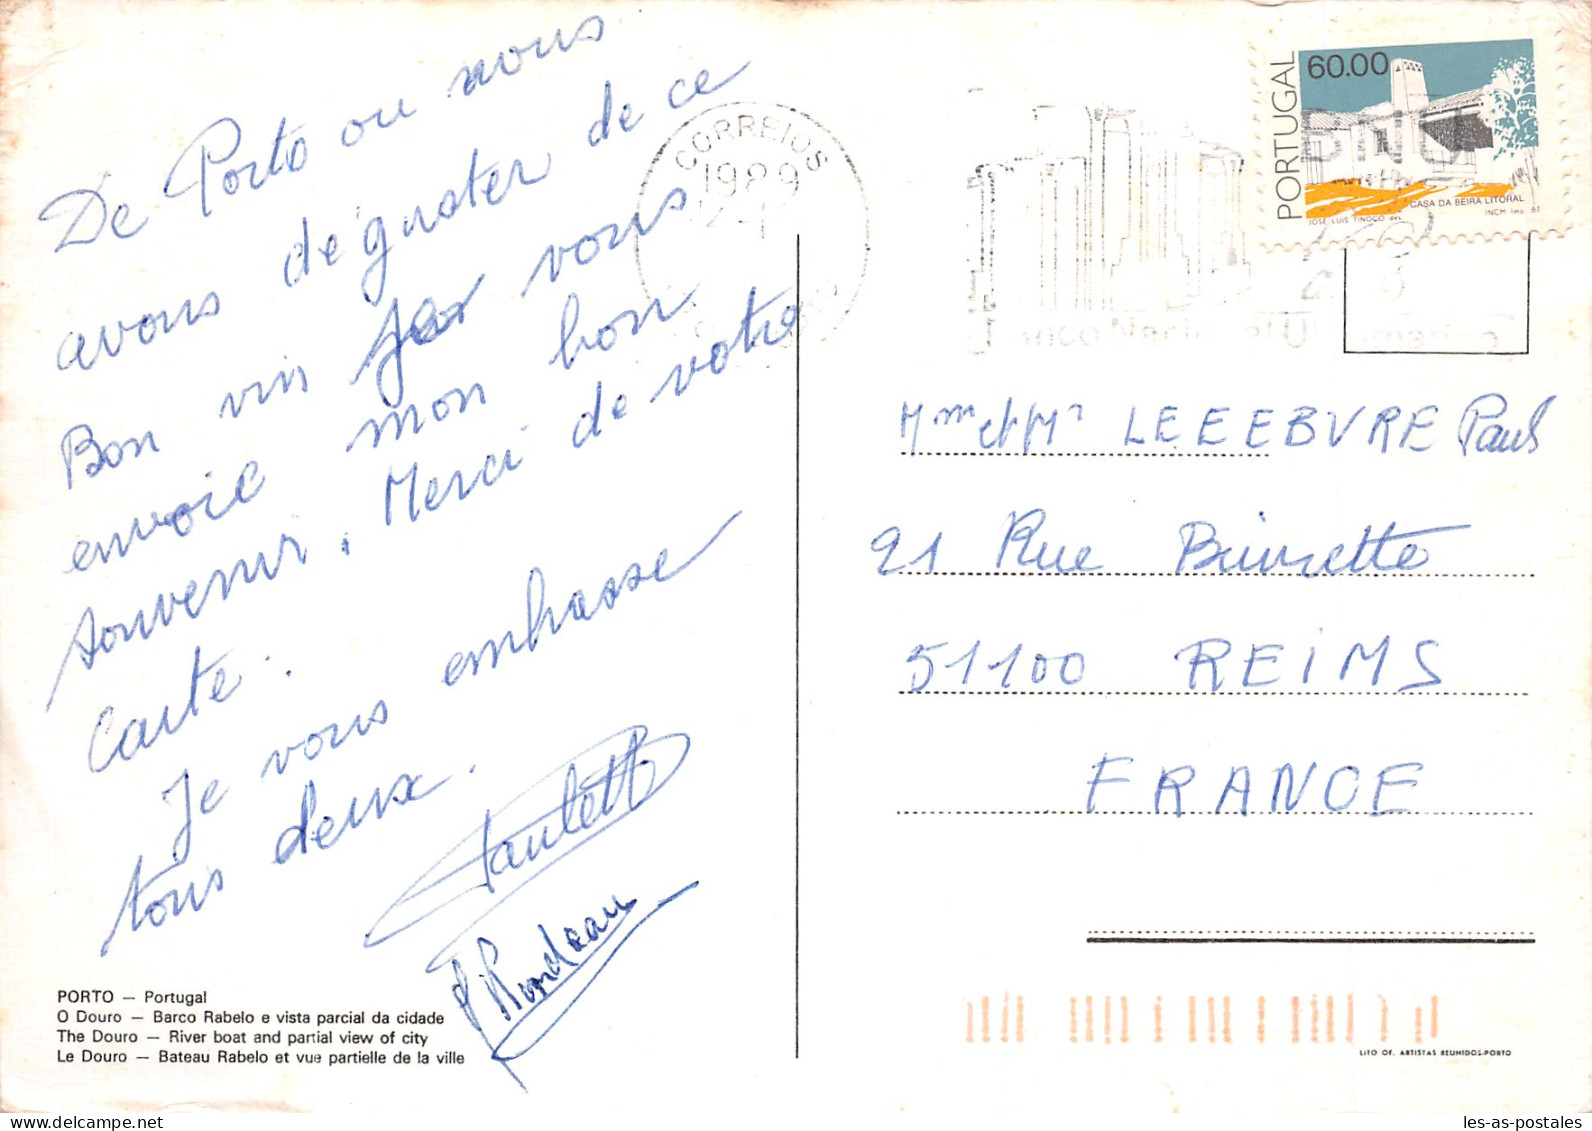 De Porto ou nous
avons déguster de ce
Bon vin je vous
envoie mon bon
souvenir. Merci de votre
Carte.
Je vous embrasse
tous deux.
Paulette
Rondeau
PORTO — Portugal
O Douro — Barco Rabelo e vista parcial da cidade
The Douro — River boat and partial view of city
Le Douro — Bateau Rabelo et vue partielle de la ville
CORREIOS
1989
PORTUGAL
60.00
CASA DA BEIRA LITORAL
JOSÉ LUIS TINOCO des.
INCM Imp. 87
BNU
Mme et Mr LEEEBVRE Paul
21 Rue
51100 REIMS
FRANCE
LITO OF. ARTISTAS REUNIDOS-PORTO
les-as-postales